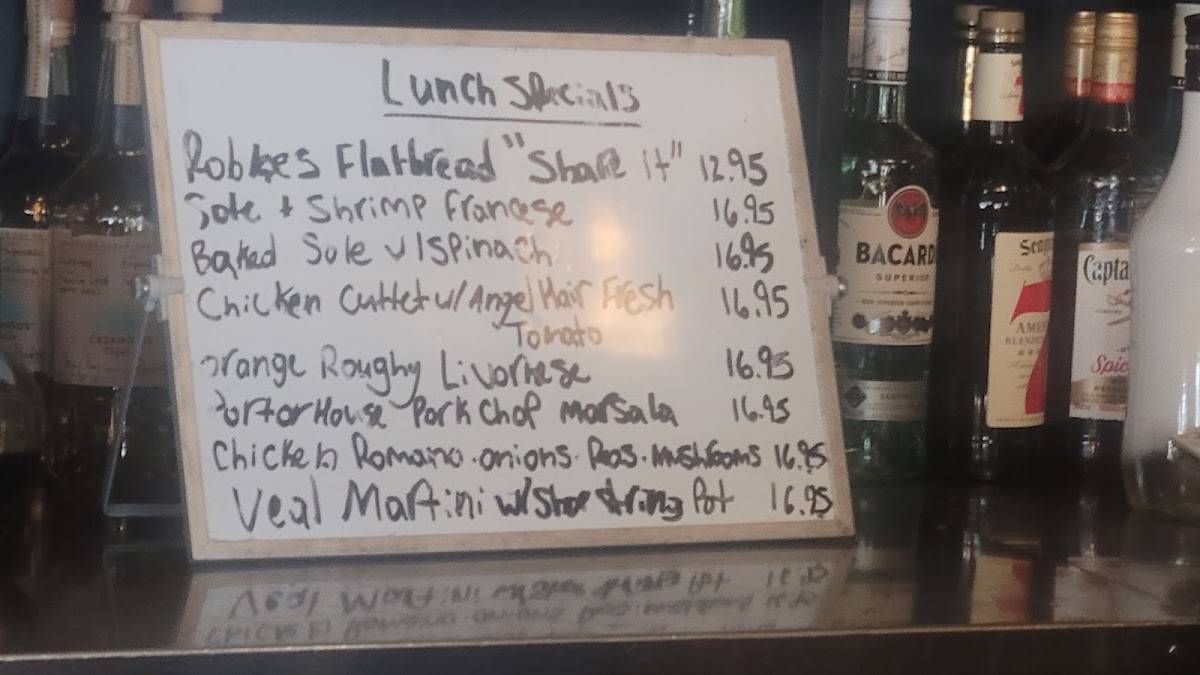 Lunch Specials
Robkes Flatbread "Share it" 12.95
Sole + Shrimp Francese 16.95
Baked Sole w/Spinach 16.95
Chicken Cuttlet w/Angel Hair Fresh 16.95
Tomato
orange Roughy Livornese 16.95
PortorHouse Pork Chop Marsala 16.95
Chicken Romano. onions. Peas. Mushrooms 16.95
Veal Martini w/Shoe string Pot 16.95
BACARD
SUPERIOR
Seag
AME
BLENDE
Capta
Spic